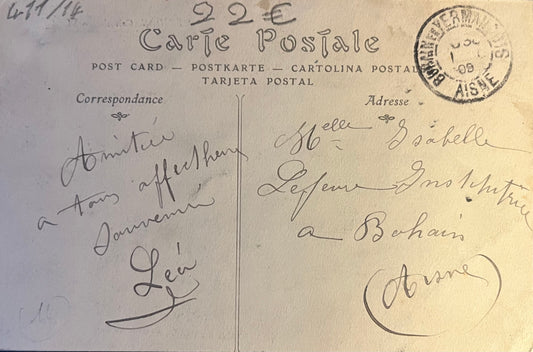 411/14
22€
Carte Postale
POST CARD — POSTKARTE — CARTOLINA POSTALE
TARJETA POSTAL
Correspondance
Adresse
BOHAIN-EN-VERMANDOIS
09
AISNE
Amitiée
a tous affectueux
souvenir
Léa
Melle Isabelle
Lefevre Institutrice
a Bohain
(Aisne)